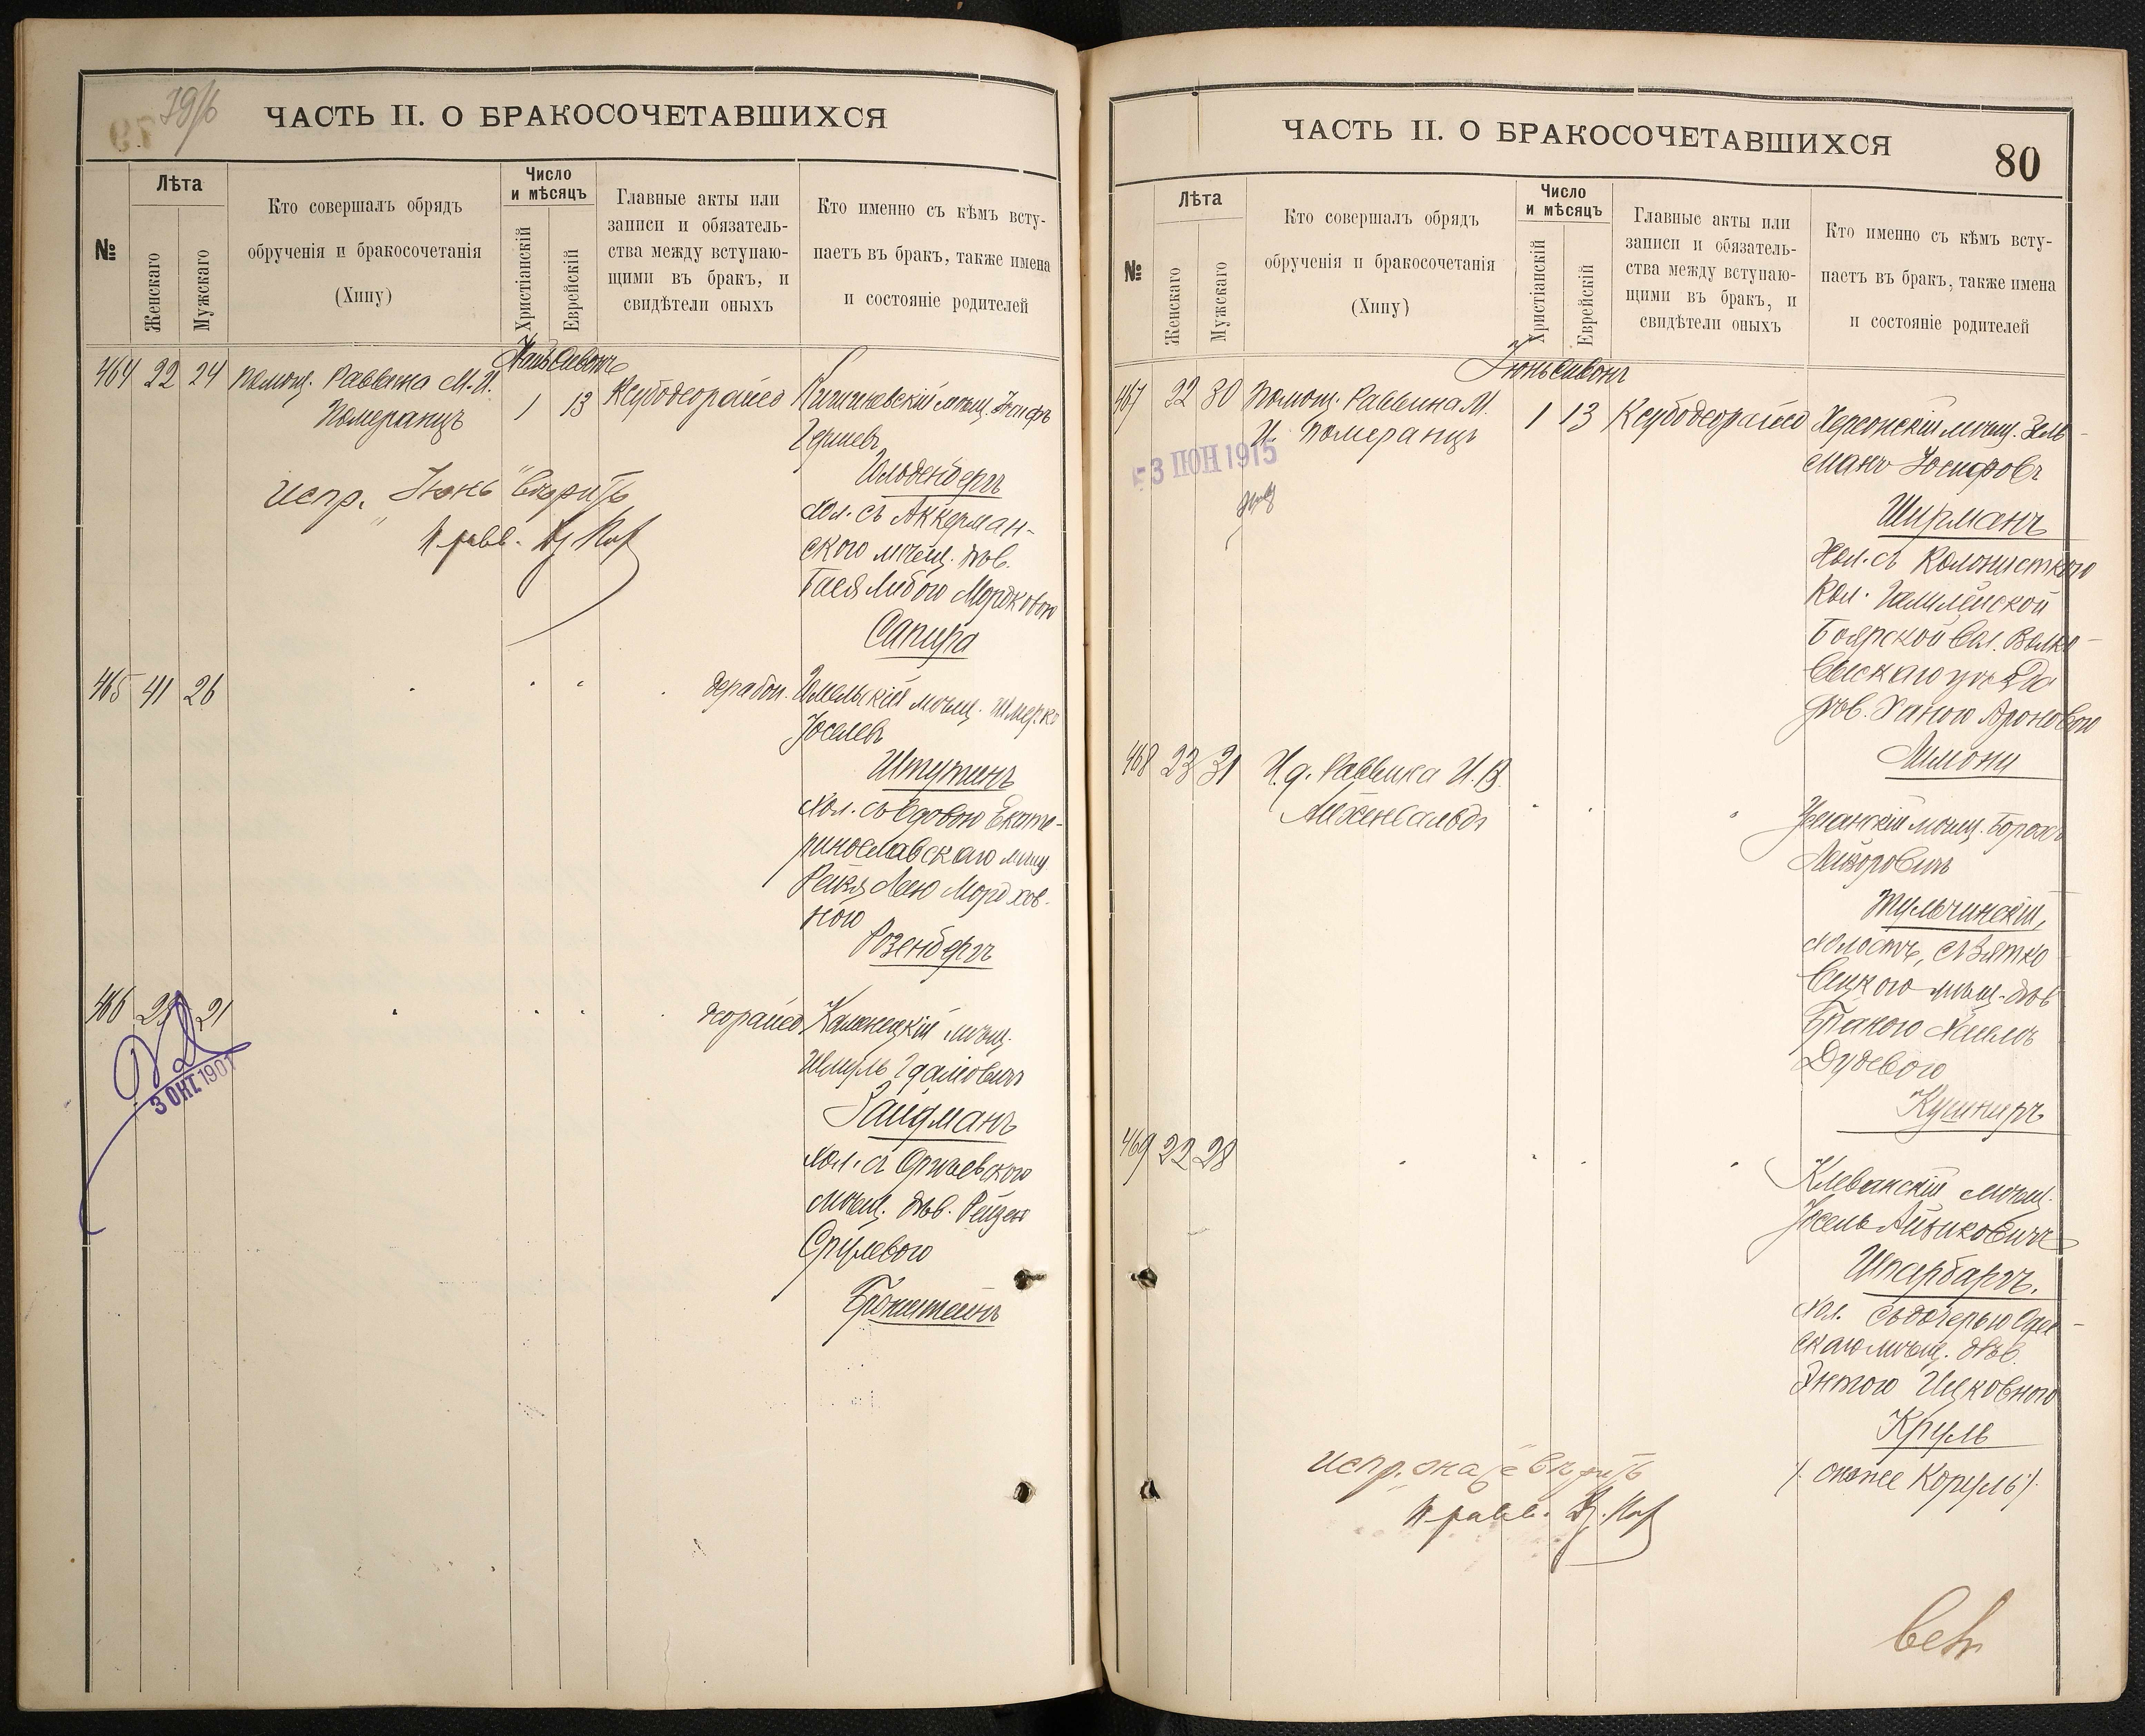 79/б
ЧАСТЬ II. О БРАКОСОЧЕТАВШИХСЯ
№
Лѣта
Женскаго
Мужскаго
Кто совершалъ обрядъ
обрученія и бракосочетанія
(Хипу)
Число
и мѣсяцъ
Христіанскій
Еврейскій
Главные акты или
записи и обязатель-
ства между вступаю-
щими въ бракъ, и
свидѣтели оныхъ
Кто именно съ кѣмъ всту-
паетъ въ бракъ, также имена
и состояніе родителей
Сивонъ
464 22 24 Помощ. Раввина М. И.
Померанцъ
1 13 Ксубодеорайсо
Кишиневскій мѣщ.
Гершевъ
Гольденбергъ
хол. съ Аккерман-
ского мѣщ. дѣв.
Бася Либою Мордковою
Сапира
испр. „Іюнь“ вѣрить
465 41 26
дерабон. Гомельскій мѣщ. Шмерко
Іоселевъ
Штутинъ
хол. съ вдовою Екате-
ринославскаго мѣщ
Рейзя Леею Мордхов-
ною
Розенбергъ
466 21
деорайсо Каменецкій мѣщ.
Шмуль
Зайдманъ
хол. съ Оргѣевского
мѣщ. дѣв. Рейзею
Срулевою
Бронштейнъ
3 ОКТ. 1901
ЧАСТЬ II. О БРАКОСОЧЕТАВШИХСЯ
80
№
Лѣта
Женскаго
Мужскаго
Кто совершалъ обрядъ
обрученія и бракосочетанія
(Хипу)
Число
и мѣсяцъ
Христіанскій
Еврейскій
Главные акты или
записи и обязатель-
ства между вступаю-
щими въ бракъ, и
свидѣтели оныхъ
Кто именно съ кѣмъ всту-
паетъ въ бракъ, также имена
и состояніе родителей
Іюнь Сивонъ
467 22 30 Помощ. Раввина М.
И. Померанцъ
1 13 Ксубодеорайсо
Херсонскій мѣщ. Зель-
манъ Іосифовъ
Ширманъ
Хол. съ Колонисткою
Кол. Галилейской
Боярской Вол. Волко-
выскаго уѣзда
дѣв. Ханою Ароновою
Лимонъ
3 ІЮН 1915
468 23 31 И. д. Раввина И. В.
Айхенвальдъ
Уманскій мѣщ. Борохъ
Лейзоровичъ
Тульчинскій,
холостъ, съ Зятко-
вецкою мѣщ. дѣв
Дудевою
Кушниръ
469 22 28
Клеванскій мѣщ.
Іосель Айзиковичъ
Шпарбаргъ.
хол. съ дочерью Одес-
скаго мѣщ. дѣв.
Энтою Ицковною
Круль
/: онаже Коруль :/
испр. „онаже“ вѣрить